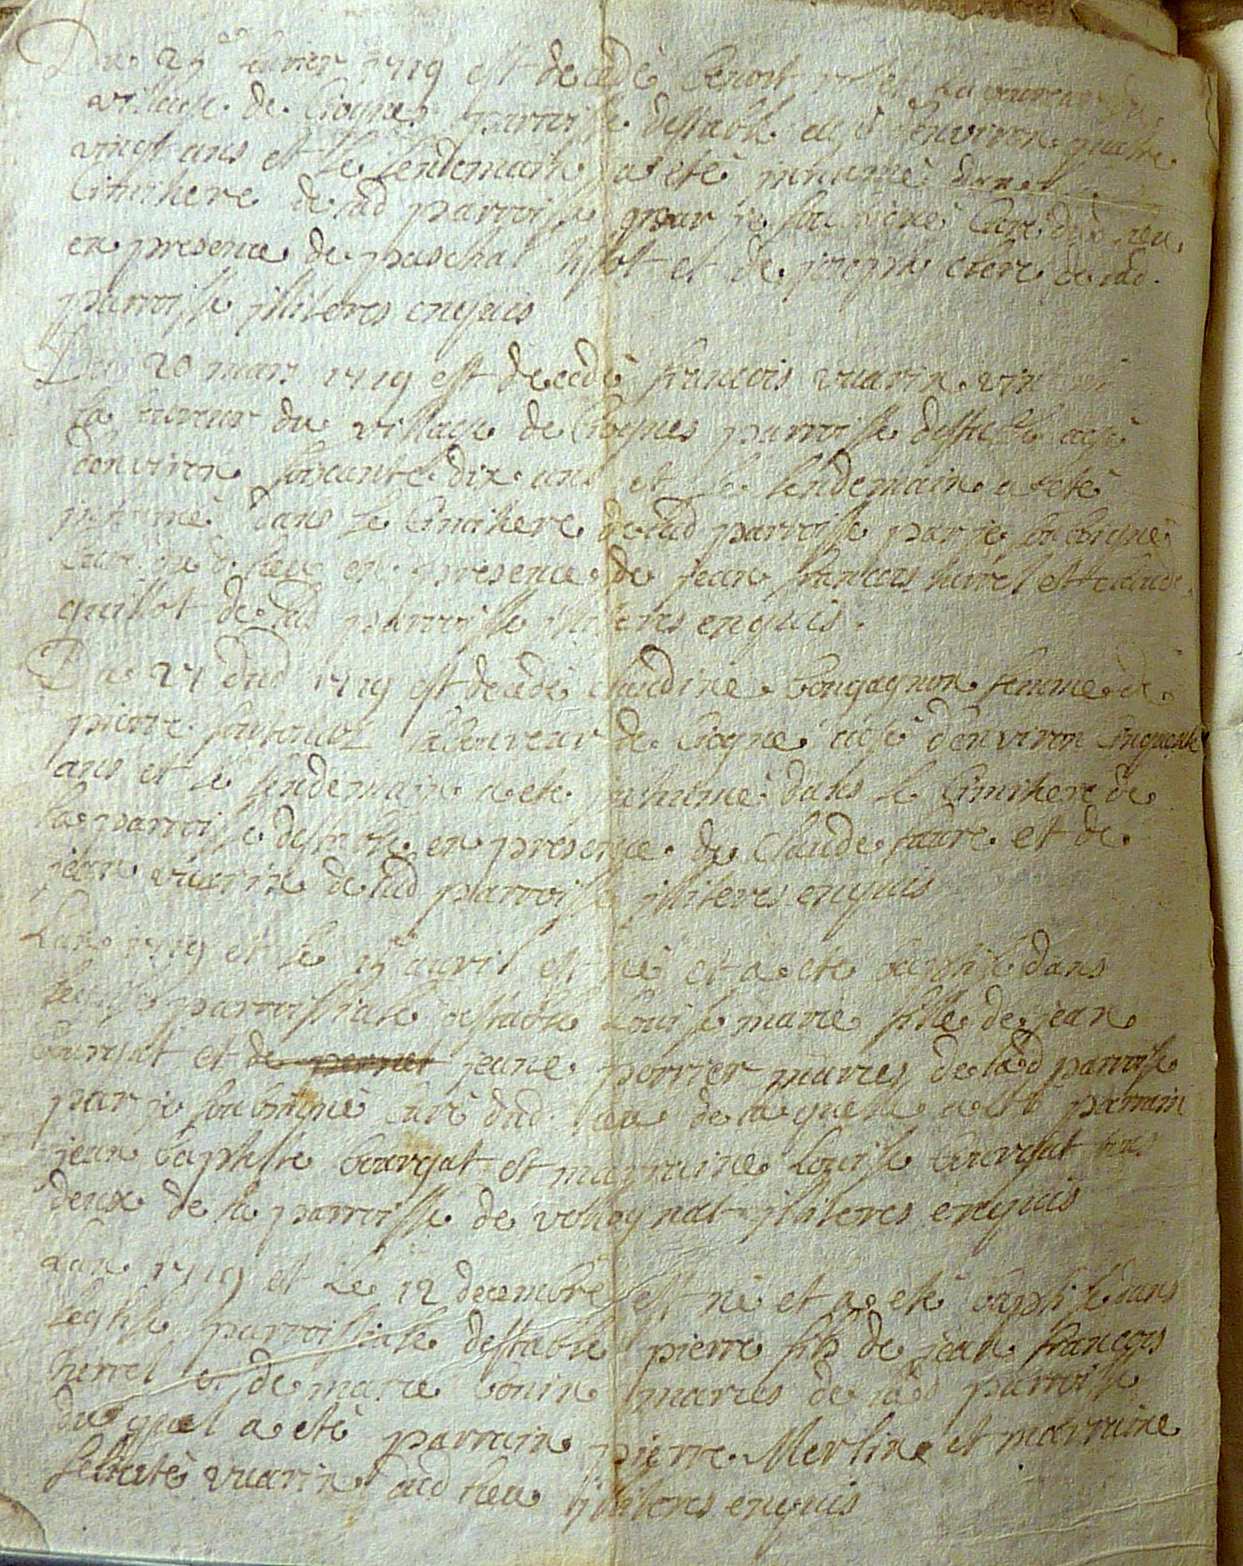 Du 27e feurier 1719 est decedé benoit laboureur du
village de Crognes parroisse destable agé denviron quatre
vingt ans et le lendemain a eté inhumé dans le
Cimithere de lad parroisse par je soubsigné Curé dud lieu
en presence de paschal et de joseph de lad
parroisse illiteres enquis
Du 20 mars 1719 est decedé francois vuarin
laboureur du village de Crognes parroisse destable agé
denviron soixante dix ans et le lendemain a eté
inhumé dans le Cimithere de lad parroisse par je soubsigné
Curé dud lieu en presence de jean francois herrel et claude
guillot de lad parroisse illiteres enquis.
Du 27 dud 1719 est decedé claudine bongagnon femme de
pierre laboureur de Crogne agé denviron cinquente
ans et le lendemain a eté inhumé dans le Cimithere de
la parroisse destable en presence de Claude faure et de
jean vuarin de lad parroisse illiteres enquis
Lan 1719 et le 17 auril est né et a eté baptisé dans
leglise parroissiale destable Louise marie fille de jean
bourgat et de perrier jeane perrier maries de lad parroisse
par je soubsigné Curé dud lieu de laquelle a eté parrain
jean baptiste bourgat et marraine Louise bourgat tous
deux de la parroisse de volognat illiteres enquis
Lan 1719 et le 12 decembre est né et a eté baptisé dans
leglise parroissiale destable pierre fils de jean francois
herrel et de marie bonin maries de lad parroisse
du quel a eté parrain pierre Merlin et marraine
vuarin dud lieu illiteres enquis